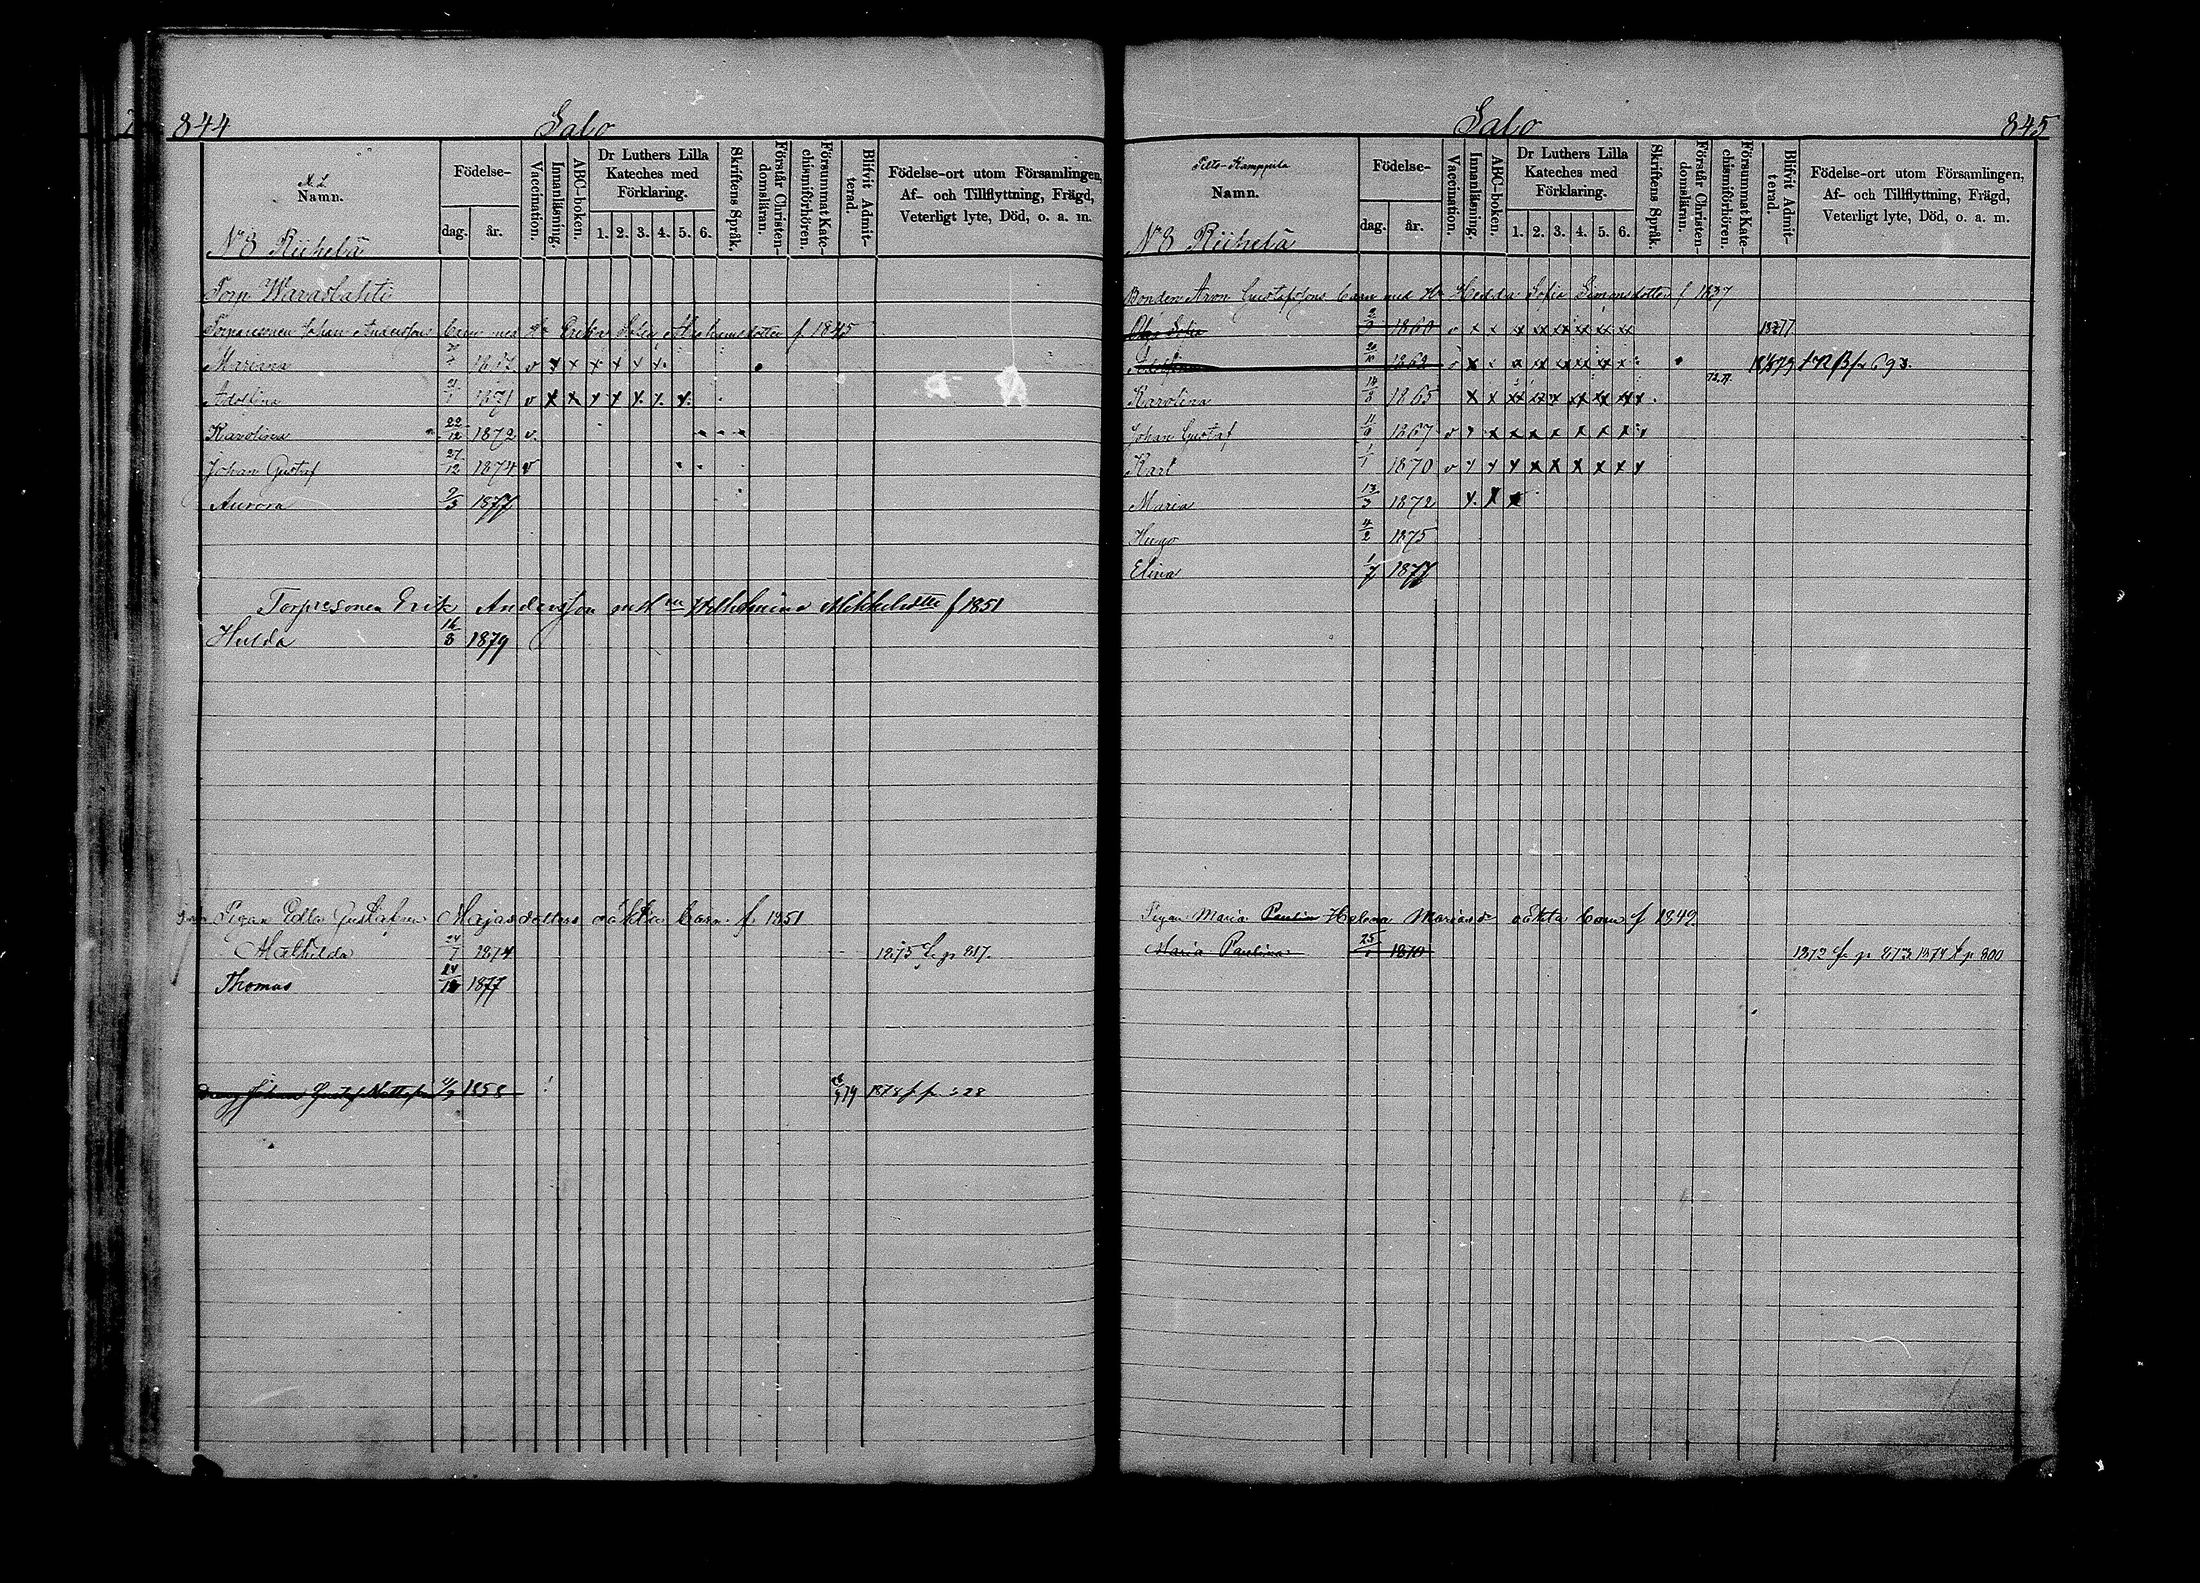 844
Salo
Namn.
Födelse-
dag. år.
Vaccination.
Innanläsning.
ABC-boken.
Dr Luthers Lilla Kateches med Förklaring.
1. 2. 3. 4. 5. 6.
Skriftens Språk.
Förstår Christendomsläran.
Försummat Katechismiförhören.
Blifvit Admitterad.
Födelse-ort utom Församlingen, Af- och Tillflyttning, Frägd, Veterligt lyte, Död, o. a. m.
No 8 Riihelä
Torp Waraslahti
Torparesonen Johan Anderssons barn med Erika Sofia Abrahamsdotter f 1845
Mariana 1867 v x x x x x x
Adolfina 1871 v x x x x x x x
Karolina 22/12 1872 v.
Johan Gustaf 27/12 1874 v
Aurora 9/3 1877
Torparesonen Erik Andersson med Wilhelmina Mikkelsdotter f 1851
Hulda 16/3 1879
Pigan Edla Gustafva Majasdotters oäkta barn f. 1851
Mathilda 24/7 1874 1875 fr p 817.
Thomas 24/12 1877
Dräng Johan Gustaf 1858 1878 f p 28
Salo
845
Namn.
Födelse-
dag. år.
Vaccination.
Innanläsning.
ABC-boken.
Dr Luthers Lilla Kateches med Förklaring.
1. 2. 3. 4. 5. 6.
Skriftens Språk.
Förstår Christendomsläran.
Försummat Katechismiförhören.
Blifvit Admitterad.
Födelse-ort utom Församlingen, Af- och Tillflyttning, Frägd, Veterligt lyte, Död, o. a. m.
No 8 Riihelä
Bonden Aron Gustafssons barn med Hu Hedda Sofia Simonsdotter f 1837
Olga Sofia 1860 v x x x xx xx xx xx xx 1877
1862 1879 693.
Karolina 14/3 1865 x x xx xx xx xx xx
Johan Gustaf 11/9 1867 v x x x x x x x x
Karl 1/1 1870 v x x x x x x x x x
Maria 13/3 1872 x. x x
Hugo 4/2 1875
Elina 1/7 1877
Pigan Maria Paulin Helena Mariasdr oäkta barn f 1849.
Maria Paulina 25/1 1870 1872 fr p 873 1874 t p 800